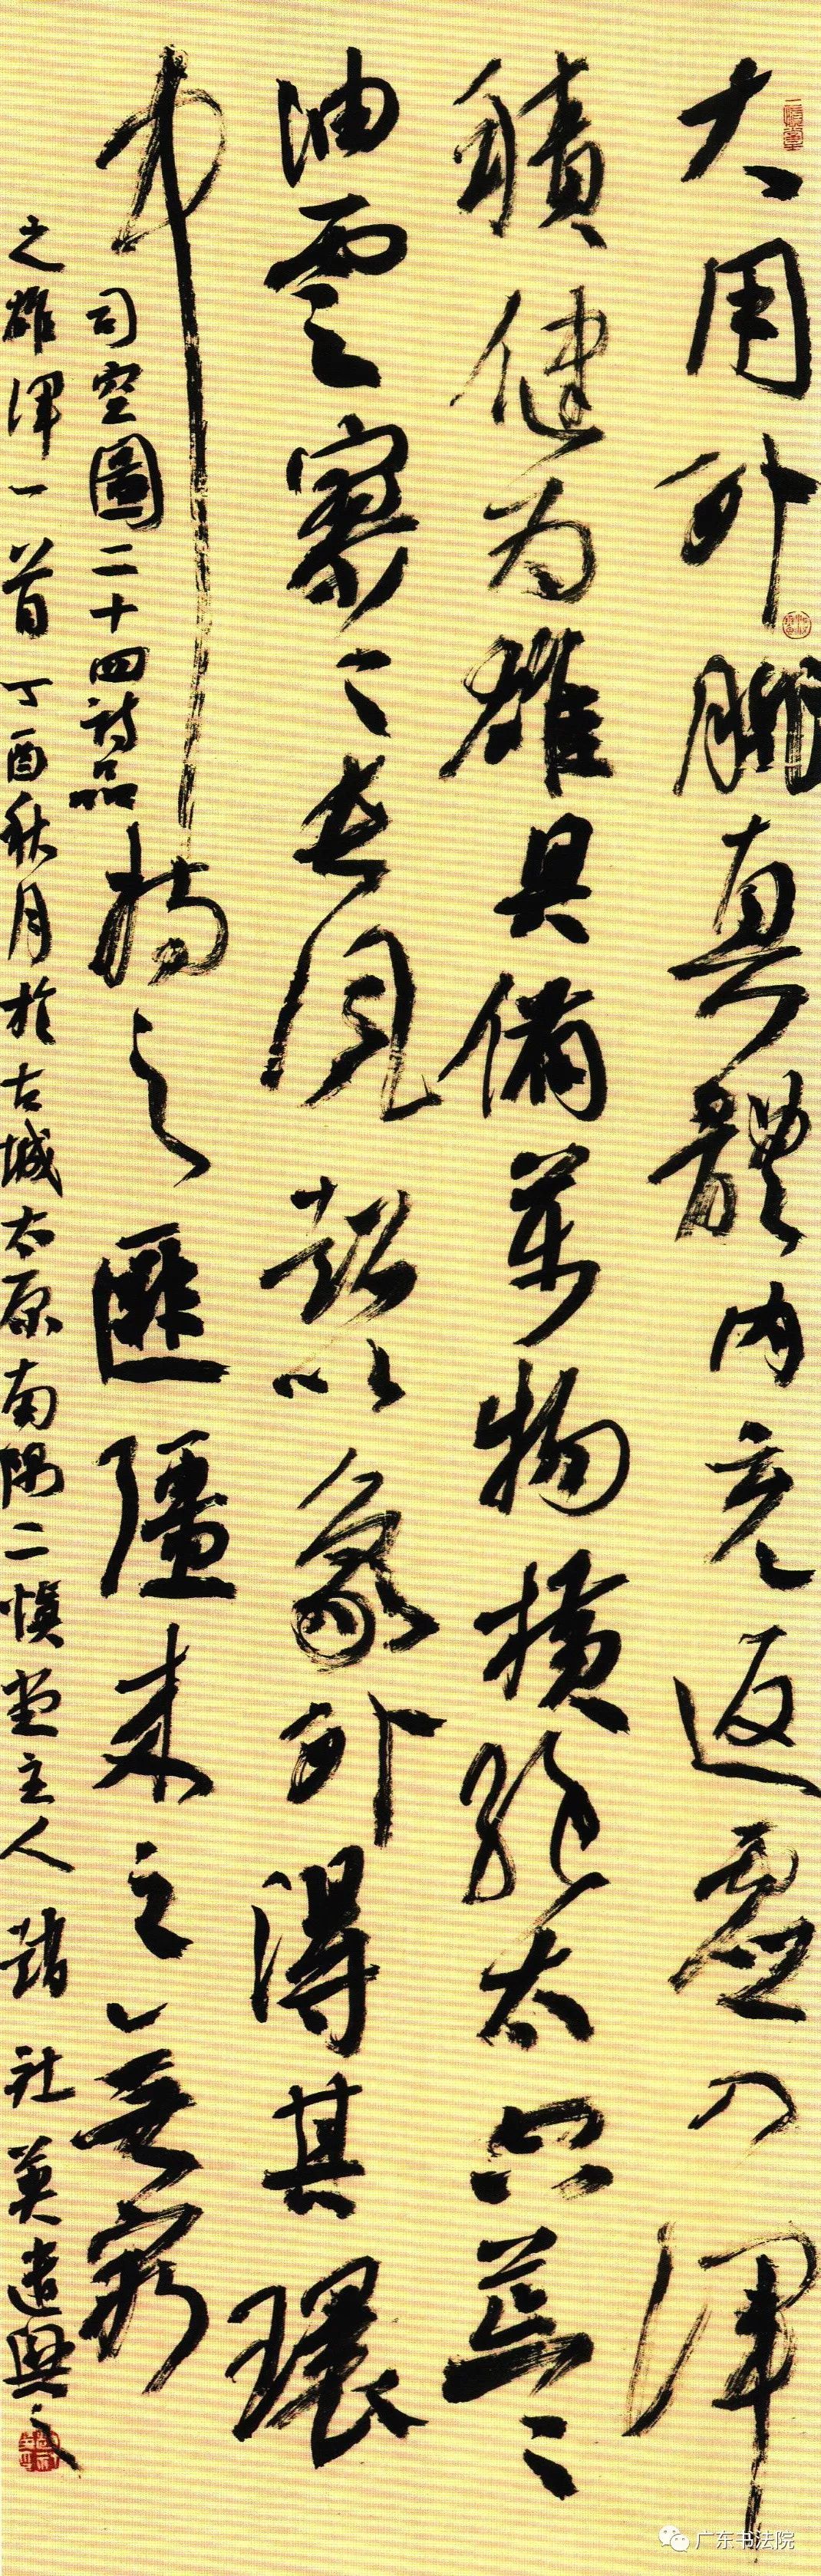 大用外腓真體內充返虛入渾
積健為雄具備萬物橫絕太空荒〻
油雲寥〻長風超以象外得其環
中持之匪彊來之無窮
司空圖二十四詩品
之雄渾一首丁酉秋月於古城太原南隅二慎堂主人趙社英遣興之
广东书法院